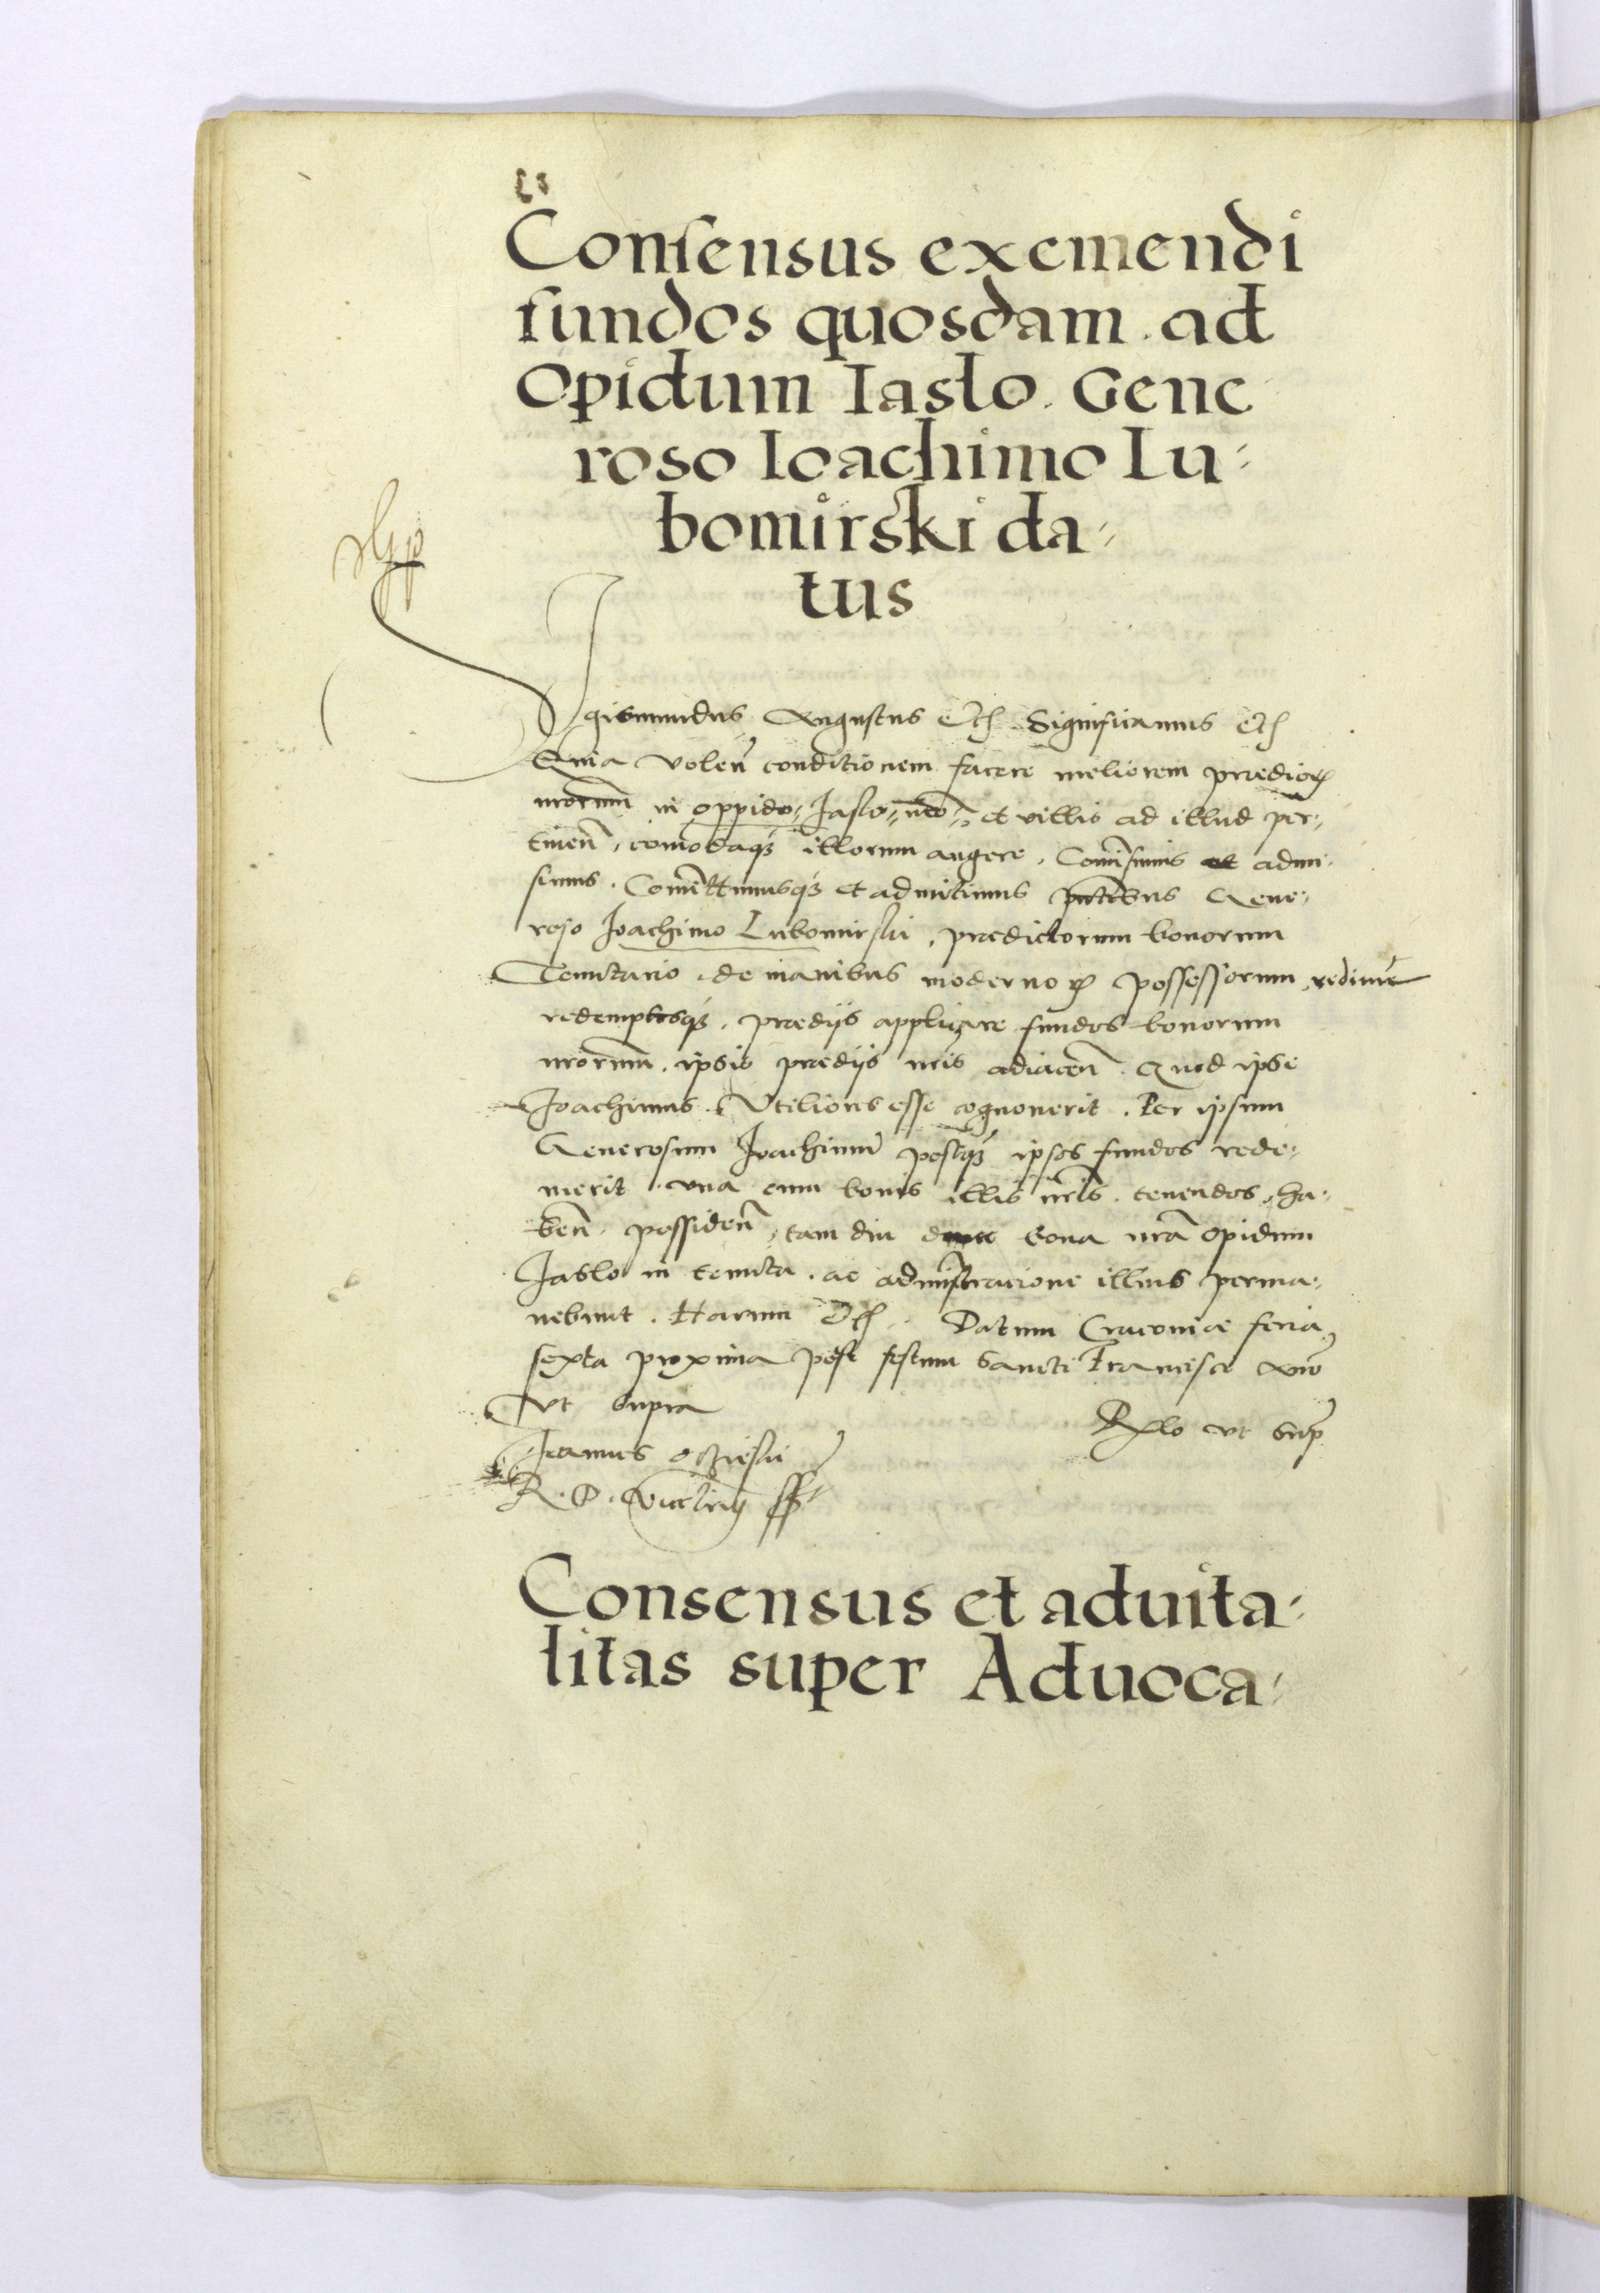 Consensus exemendi
fundos quosdam. ad
Opidum Iaslo. Gene
roso Ioachimo Lu⸗
bomirski da⸗
tus
Sigismundus Augustus Etc Significamus Etc
Quia volen̄ conditionem facere meliorem prædioꝝ
nr̄orum in oppido Jaslo nr̄o et villis ad illud per⸗
tinen̄, com̄odaqꝫ illorum augere, Com̄isimus et admi⸗
simus. Com̄ittimusqꝫ et admitimus pn̄tibus Gene⸗
roso Joachimo Lubomirski, prædictorum bonorum
Tenutario. de manibus modernoꝝ possessorum redimere
redemptosqꝫ, prædijs applicare fundos bonorum
nr̄orum. ipsis prædijs nr̄is adiacen̄. Quod ipse
Joachimus Utilions esse cognouerit. Per ipsum
Generosum Joachimū postqꝫ ipsos fundos rede⸗
merit. vna cum bonis illis nr̄is. tenendos, ha⸗
ben̄. possiden̄, tam diu donec bona nr̄a opidum
Jaslo in tenuta. ac administracione illius perma⸗
nebunt. Harum Etc. Datum Cracouiæ feria
sexta proxima post festum Sancti Francisci Anō
Vt supra
Rēlo vt sup̄
Joannes Oczieski
R. P. Vicecancellarius sst
Consensus et aduita⸗
litas super Aduoca⸗